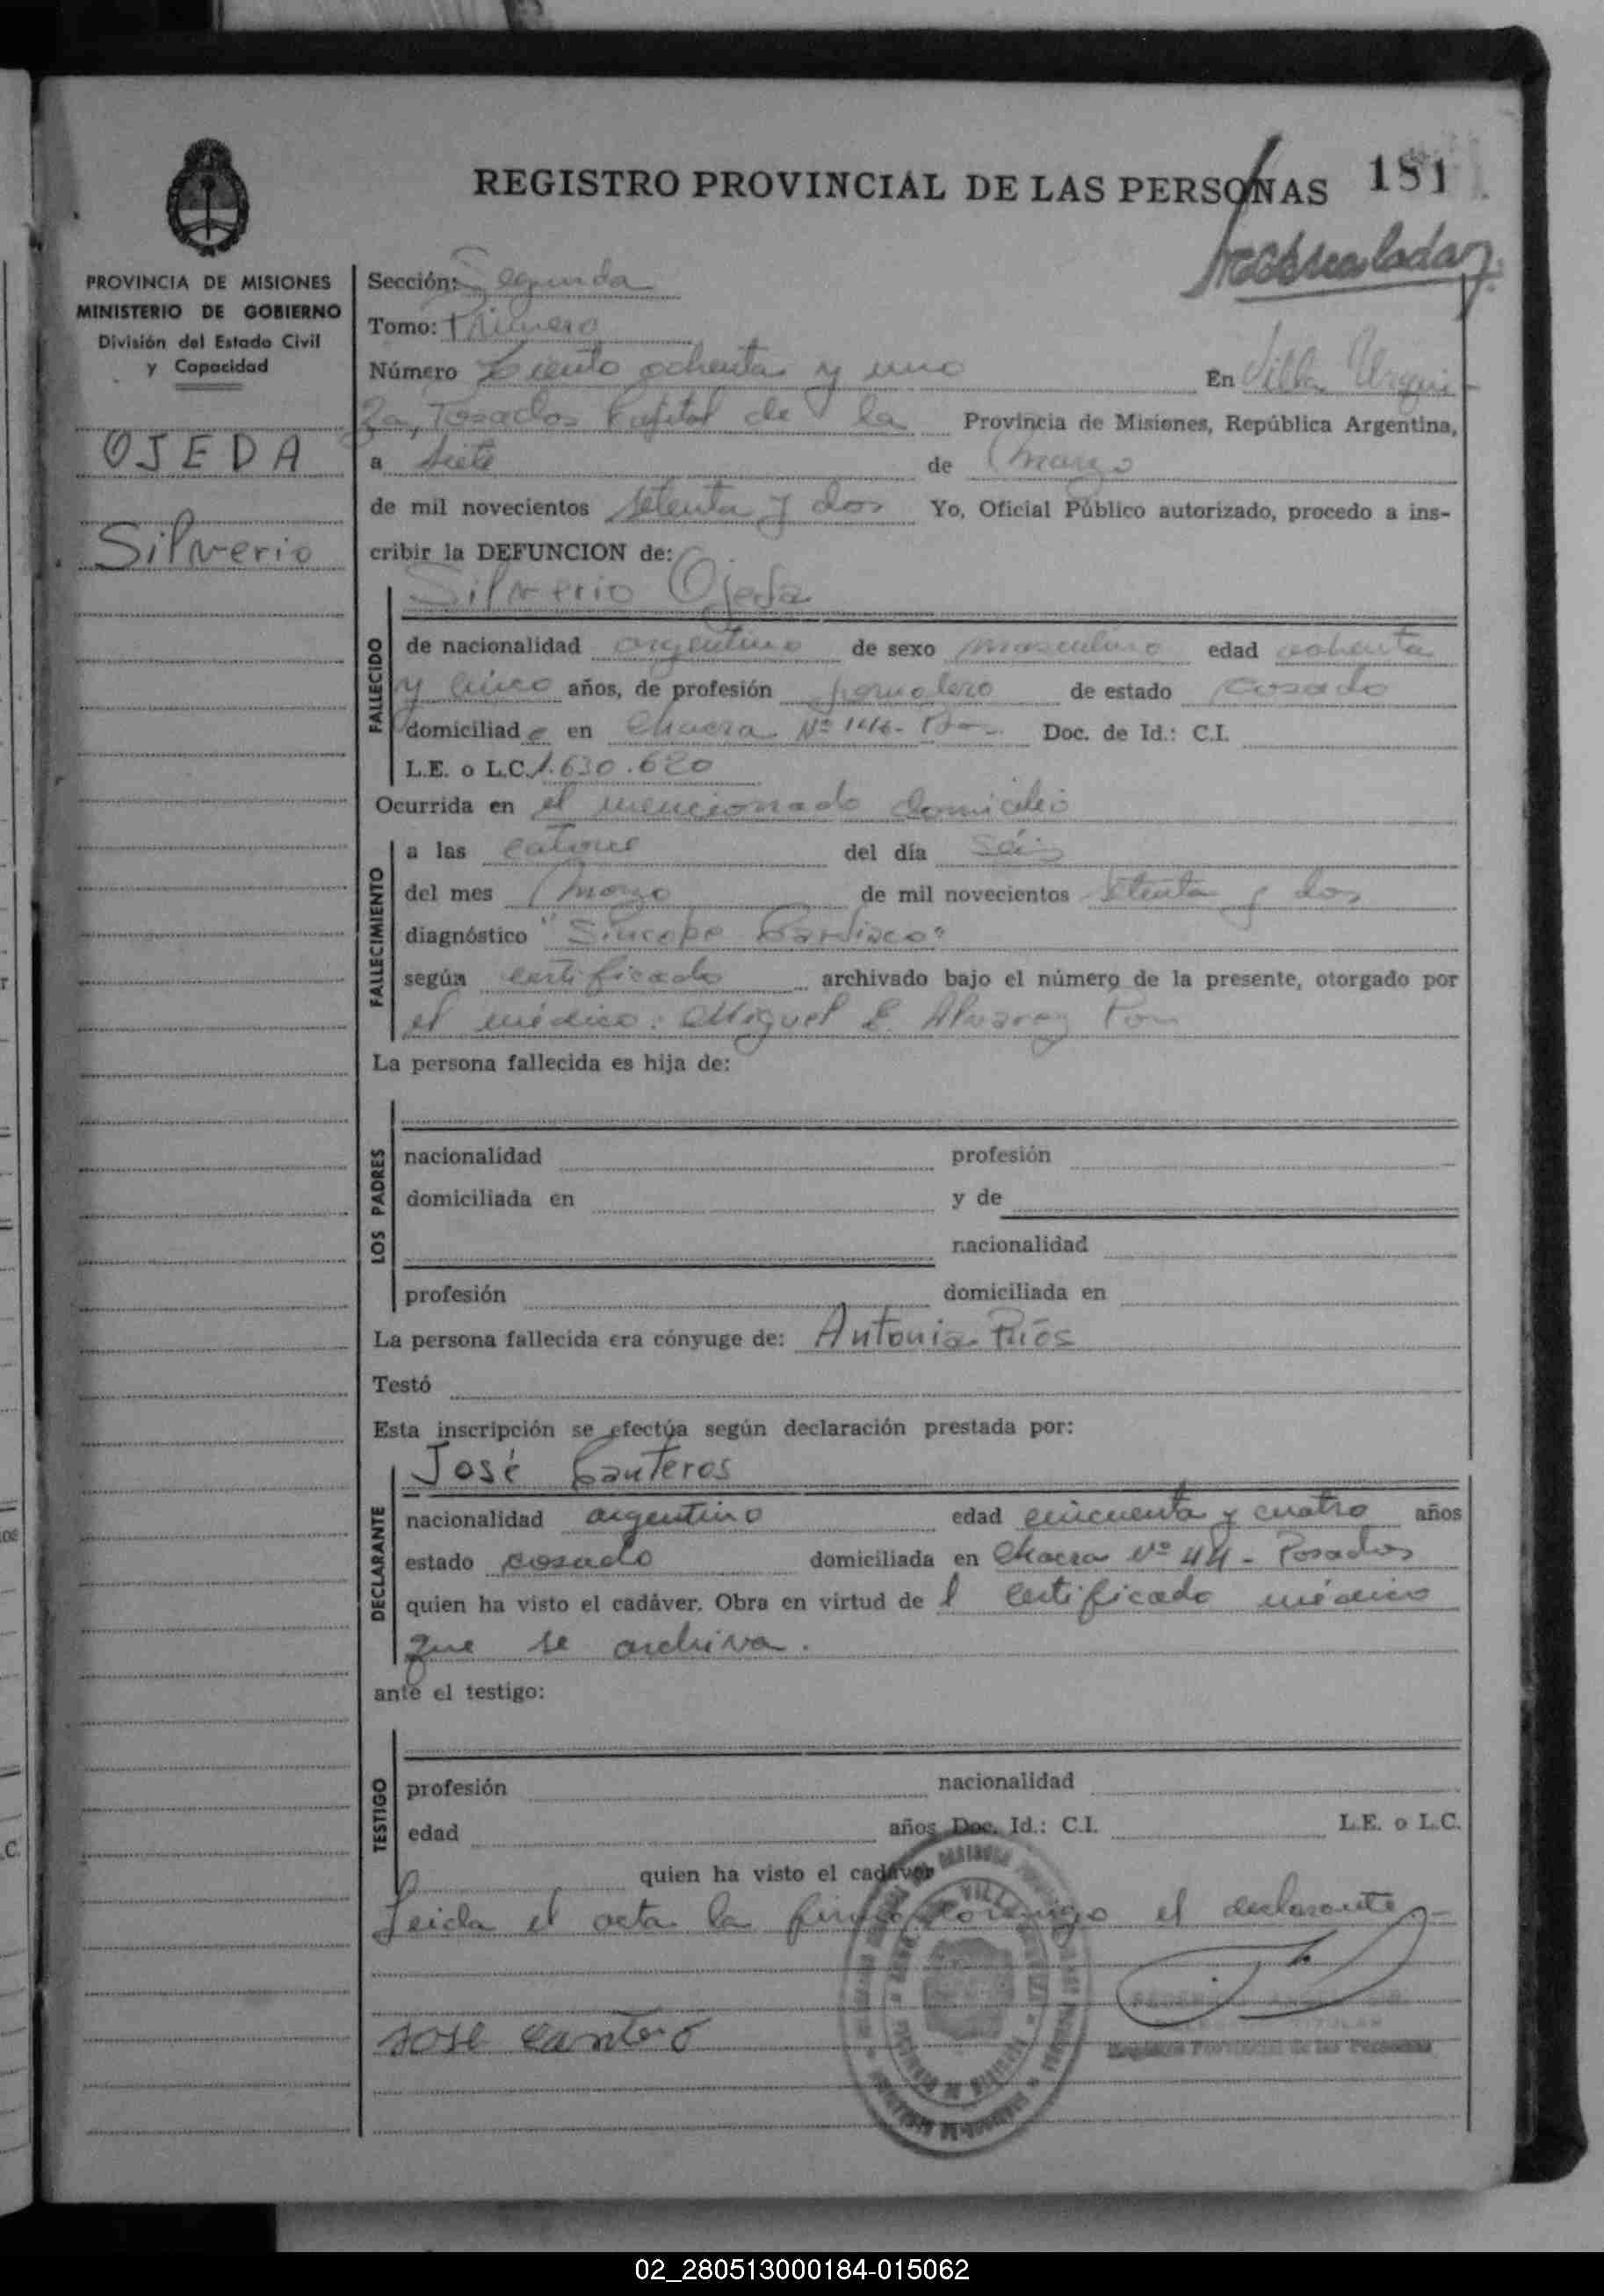 REGISTRO PROVINCIAL DE LAS PERSONAS 181
PROVINCIA DE MISIONES
MINISTERIO DE GOBIERNO
División del Estado Civil
y Capacidad
OJEDA
Silverio
Sección: Segunda
Tomo: Primero
Número Ciento ochenta y uno En Villa Urqui-
za, Posadas Capital de la Provincia de Misiones, República Argentina,
a siete de Marzo
de mil novecientos setenta y dos Yo, Oficial Público autorizado, procedo a ins-
cribir la DEFUNCION de:
Silverio Ojeda
FALLECIDO
de nacionalidad argentino de sexo masculino edad ochenta
y cinco años, de profesión jornalero de estado casado
domiciliad o en Chacra Nº Doc. de Id.: C.I.
L.E. o L.C. 1.630.620
Ocurrida en el mencionado domicilio
FALLECIMIENTO
a las catorce del día seis
del mes Marzo de mil novecientos setenta y dos
diagnóstico "Sincope Cardiaco"
según certificado archivado bajo el número de la presente, otorgado por
el médico: Miguel E. Alvarez
La persona fallecida es hija de:
LOS PADRES
nacionalidad profesión
domiciliada en y de
nacionalidad
profesión domiciliada en
La persona fallecida era cónyuge de: Antonia Ríos
Testó
Esta inscripción se efectúa según declaración prestada por:
José Canteros
DECLARANTE
nacionalidad argentino edad cincuenta y cuatro años
estado casado domiciliada en Chacra Nº 44 - Posadas
quien ha visto el cadáver. Obra en virtud de l certificado médico
que se archiva.
ante el testigo:
TESTIGO
profesión nacionalidad
edad años Doc. Id.: C.I. L.E. o L.C.
quien ha visto el cadáver
Leida el acta la firma conmigo el declarante
Jose Cantero
Registro Provincial de las Personas
02_280513000184-015062